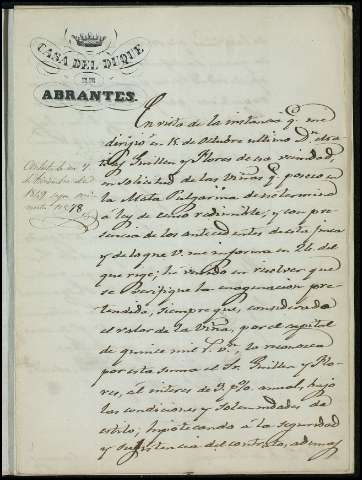 CASA DEL DUQUE
DE
ABRANTES.
En vista de la instancia q. me
dirigió en 15 de Octubre ultimo Dn
Guillen y Flores de esa vecindad,
en solicitud de las Viñas q. poseo en
la Mata Pulgarina
á ley de censo redimible, y con pre-
sencia de los antecedentes de esta finca
y de lo que V. me informa en 24 del
que rige; he venido en resolver que
se verifique la enagenacion pre-
tendida, siempre que, considerado
el valor de la Viña, por el capital
de quince mil r.s v.n, lo reconozca
por esta suma el Sr. Guillen y Flo-
res, al interes de 3 p.% anual, bajo
las condiciones y solemnidades de
estilo; hipotecando á la seguridad
y subsistencia del contrato, ademas
Contestada en 4
de Noviembre de
1849
478